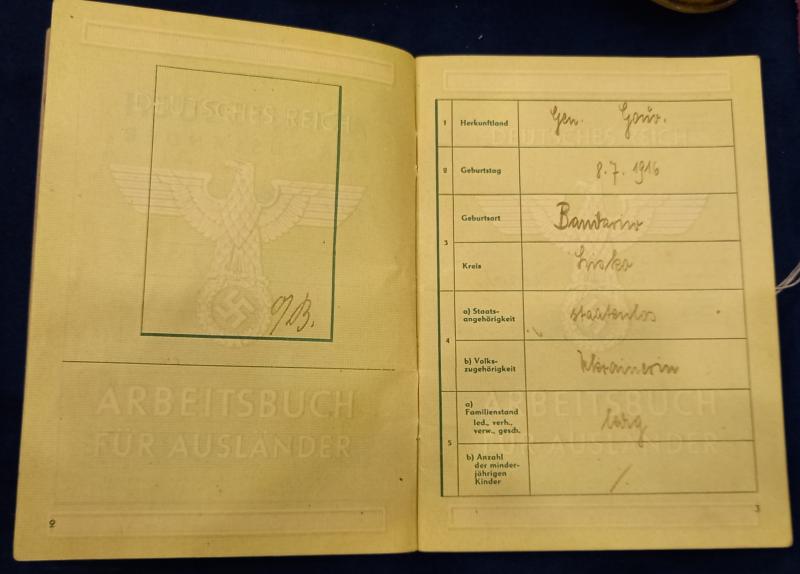 DEUTSCHES REICH
ARBEITSBUCH
FÜR AUSLÄNDER
2
1 Herkunftland Gen. Gouv.
2 Geburtstag 8. 7. 1916
3 Geburtsort
Kreis Lisko
4 a) Staats-
angehörigkeit staatenlos
b) Volks-
zugehörigkeit Ukrainerin
5 a)
Familienstand
led., verh.,
verw., gesch. ledig
b) Anzahl
der minder-
jährigen
Kinder
DEUTSCHES REICH
ARBEITSBUCH
FÜR AUSLÄNDER
3